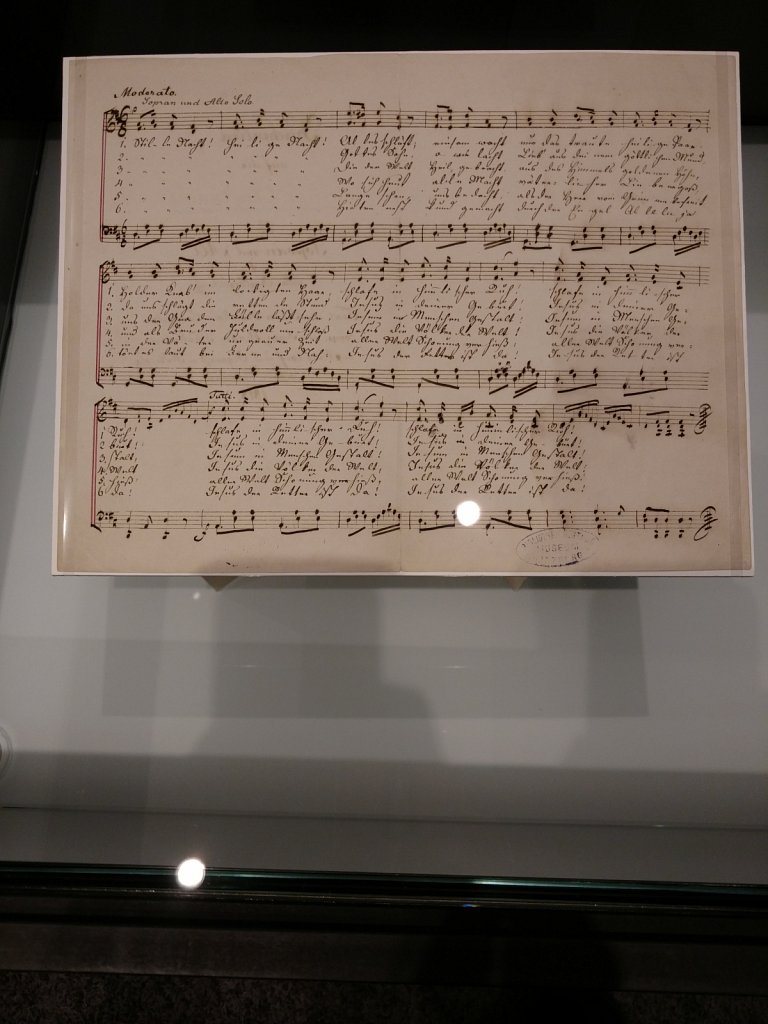 Moderato.
Sopran und Alto Solo
1. Stil-le Nacht! Hei-li-ge Nacht! Al-les schläft; einsam wacht nur das traute heilige Paar.
2. " " " " " " Got-tes Sohn, o wie lacht Lieb' aus dei-nem göttlichen Mund
3. " " " " " " Die der Welt Heil gebracht aus des Himmels goldenen Höhn,
4. " " " " " " Wo sich heut al-le Macht väter-li-cher Lie-be ergoß
5. " " " " " " Lange schon uns bedacht, als der Herr vom Grimme befreit
6. " " " " " " Hirten erst kund gemacht durch der Engel Alleluja
1 Holder Knab' im lockigten Haar, schlafe in himmlischer Ruh! schlafe in himmli-scher
2. da uns schlägt die rettende Stund' Jesus in deiner Geburt! Jesus in deiner Ge-
3. uns der Gnaden Fülle läßt sehn, Jesum in Menschen Gestalt! Jesum in Menschen Ge-
4. und als Bruder huldvoll umschloß Jesus die Völker der Welt! Jesus die Völker der
5. in der Väter urgrauer Zeit aller Welt Schonung verhieß! aller Welt Schonung ver-
6. tönt es laut bei Ferne und Nah: Jesus der Retter ist da! Jesus der Retter ist
Tutti.
1 Ruh! schlafe in himmlischer Ruh! schlafe in himmlischer Ruh!
2 burt! Jesus in deiner Geburt! Jesus in deiner Geburt!
3. stalt! Jesum in Menschen Gestalt! Jesum in Menschen Gestalt!
4. Welt Jesus die Völker der Welt, Jesus die Völker der Welt!
5. hieß! aller Welt Schonung verhieß, aller Welt Schonung verhieß!
6 da! Jesus der Retter ist da! Jesus der Retter ist da!